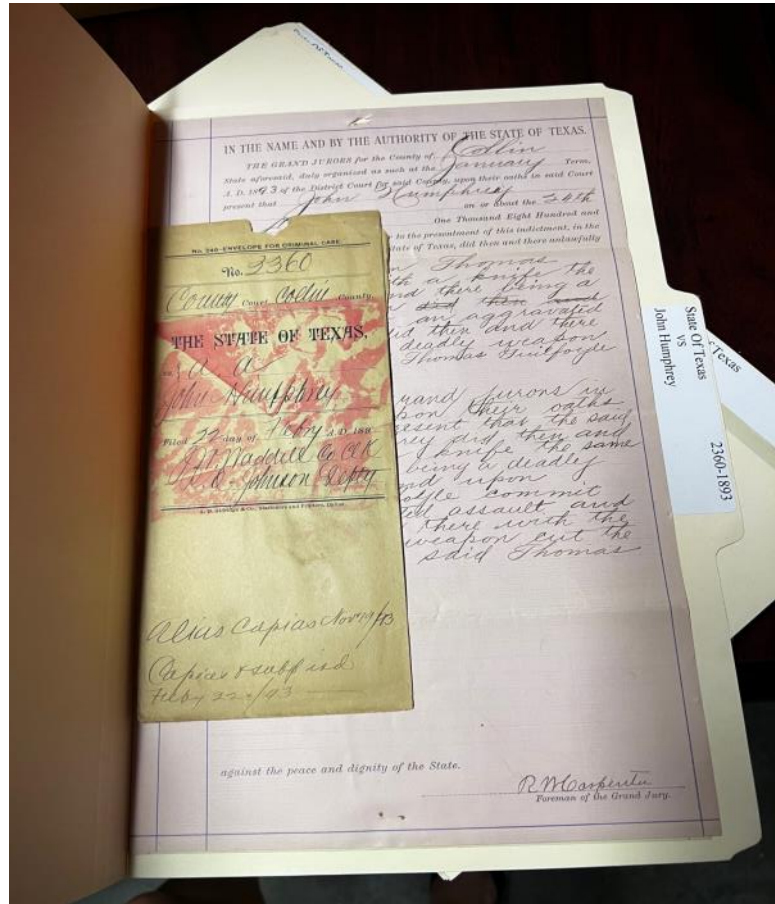 IN THE NAME AND BY THE AUTHORITY OF THE STATE OF TEXAS.
THE GRAND JURORS for the County of Collin
State aforesaid, duly organized as such at the January Term,
A. D. 1893 of the District Court for said County, upon their oaths in said Court
present that John Humphrey
on or about the 24th
One Thousand Eight Hundred and
to the presentment of this indictment, in the
tate of Texas, did then and there unlawfully
n Thomas
ith a knife the
nd there being a
did then
an aggravated
id then and there
deadly weapon
Thomas Guilfoyle
rand jurors in
pon their oaths
esent that the said
rey did then and
knife the same
being a deadly
nd upon
oyle commit
ted assault and
there with the
weapon cut the
said Thomas
against the peace and dignity of the State.
R M Carpenter
Foreman of the Grand Jury.
No. 240-ENVELOPE FOR CRIMINAL CASE
No. 2360
County Court, Collin County.
THE STATE OF TEXAS,
vs. a a
John Humphrey
Filed 22 day of Feby A.D. 189
Waddill Co Clk
Johnson Depty
Alias Capias Nov 19/93
Capias & subp isd
Feby 22/93
State Of Texas
VS
John Humphrey
2360-1893
Texas